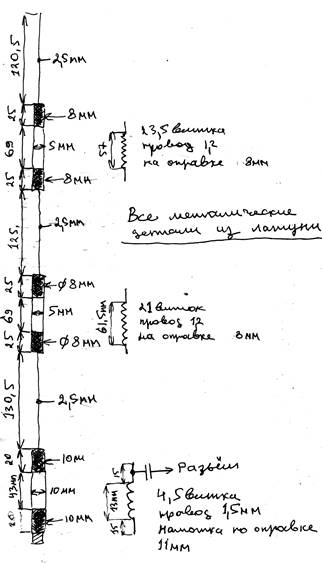 120,5
2,5мм
25
8мм
69
5мм
25
8мм
45
23,5 витка
провод 1,2
на оправке 8мм
125,
2,5мм
Все металические
детали из латуни
25
Ф8мм
69
5мм
25
Ф8мм
19,5мм
21 виток
провод 1,2
на оправке 8мм
130,5
2,5мм
20
10м
43мм
10мм
20
10мм
15
13мм
15
Разъём
4,5 витка
провод 1,5мм
намотка по оправке
11мм